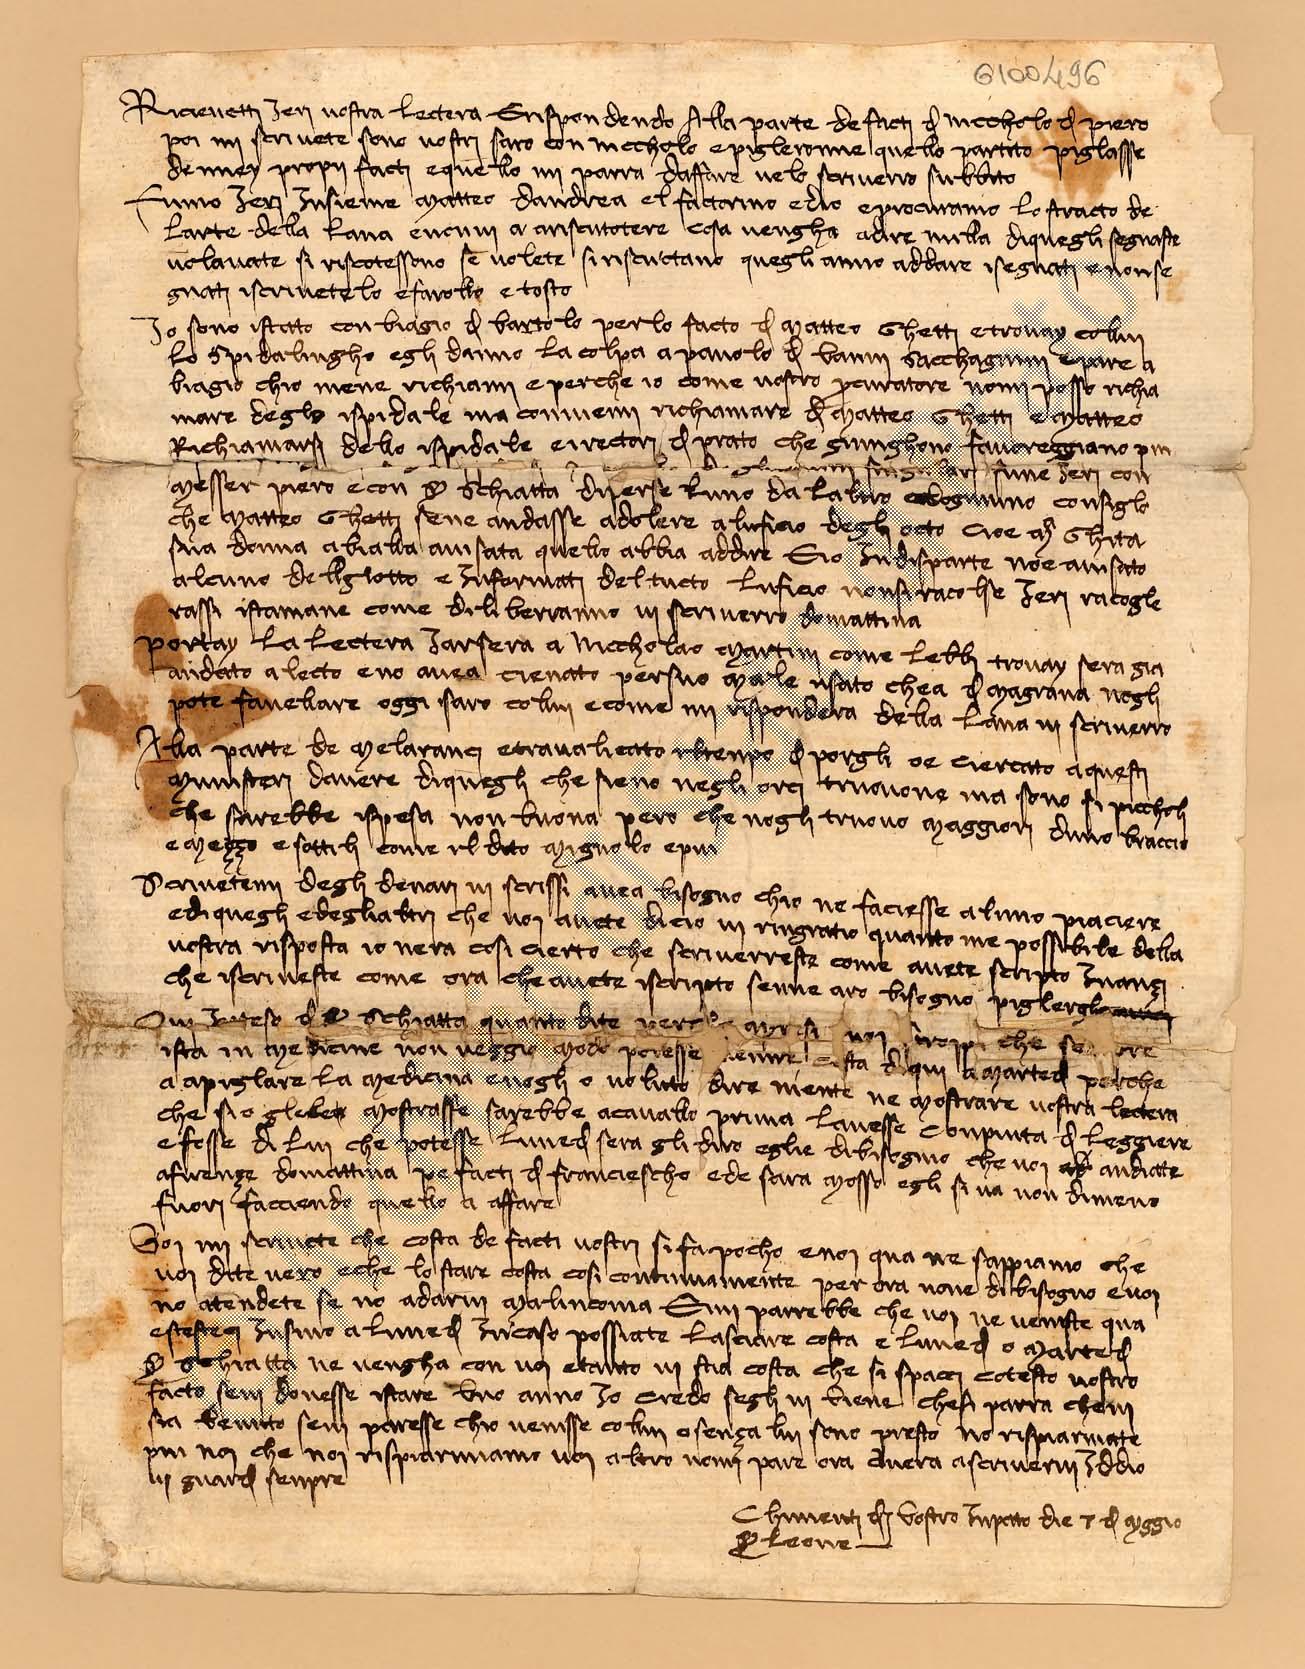 6100496
Ricievetti Ieri vostra lectera Erispondendo Alla parte de facti di Niccholo di piero
poi mi scrivete sono vostri saro con niccholo e pigleronne quello partito piglasse
de miey propii facti e quello mi parra daffare velo scriverro subbito
Fumo Ieri Insieme Matteo dandrea el factorino ed io e procuramo lo stracto de
larte della lana e cosa vengha adire nulla diquegli segnaste
volavate si riscotessono se volete si riscuotano quegli anno addare isegnati e nonse
gnati iscrivetelo e farollo e tosto
Io sono istato con biagio di bartolo per lo facto di Matteo Ghetti e trovay collui
lo Spidalingho egli danno la colpa a pavolo di vanni e pare a
biagio chio mene richiami e perche io come vostro procuratore nomi posso richia
mare deglo ispidale ma convienmi richiamare di Matteo Ghetti e Matteo
Richiamarsi dello ispidale e i rectori di prato che giunghono favoreggiano piu
fune Ieri con
Messer piero e con S Schiatta diperse luno da laltro ed ognuno consiglo
che Matteo Ghetti sene andasse adolere a luficio degli octo cioe Mª Ghita
sua donna abialla avisata quello abbia addire Eio Indisparte noe avisato
alcuno degliotto e Informati del tucto Luficio nonsi racolse Ieri racogle
rassi istamane come diliberranno vi scriverro domattina
portay la lectera Iarsera a Niccholao Martini come lebbi trovay sera gia
andato a lecto e no avea cienato per suo Male usato chea di Magrana nogli
pote favellare oggi saro collui e come mi rispondera della lana vi scriverro
Alla parte de Melaranci e travalicato il tenpo di porgli oe ciercato a questi
Munisteri davere diquegli che sieno negli orci truovone ma sono si piccholi
che sarebbe ispesa non buona pero che nogli truovo Maggiori duno braccio
e Mezzo e sottili come il dito Mignolo e piu
Scrivetemi degli denari vi scrissi avea bisogno chio ne faciesse alluno piaciere
e di quegli e degli altri che voi avete dicio vi ringratio quanto me possibile della
vostra risposta io nera cosi cierto che scriverreste come avete scripto Inanzi
che iscriveste come ora che avete iscripto senne aro bisogno piglergli
Ouy Inteso di S Schiatta quanto dite perche
ista in Medicine non veggio Modo potesse venire costa diqui a Martedi perche
a apiglare la Medicina e nogli o voluto dire niente ne Mostrare vostra lectera
che si o glele Mostrasse sarebbe acavallo prima lavesse conpiuta di leggiere
e fosse di lui che potesse lunedi sera gli diro egle dibisogno che voi andiate
a firenze domattina pe facti di franciescho ed e sara Mosso egli si va non dimeno
fuori facciendo quello a affare
Voi mi scrivete che costa de facti vostri si fa pocho e noi qua ne sappiamo che
voi dite vero e che lo stare costa cosi continuamente per ora none dibisogno e voi
no atendete se no a darvi Malinconia Emi parrebbe che voi ne veniste qua
e steste ci Insino a lunedi In caso possiate lasciare costa e lunedi o Martedi
S Schiatta ne vengha con voi e tanto vi stia costa che si spacci cotesto vostro
facto sevi dovesse istare uno anno Io credo segli vi viene chesi parra chevi
sia venuto sevi paresse chio venisse collui o senza lui sono presto no rispiarmate
piu noi che noi rispiarmiamo voi altro nomi pare ora avera a scrivervi Iddio
vi guardi senpre
Chimenti di vostro Inprato die 7 di Maggio
S Leone